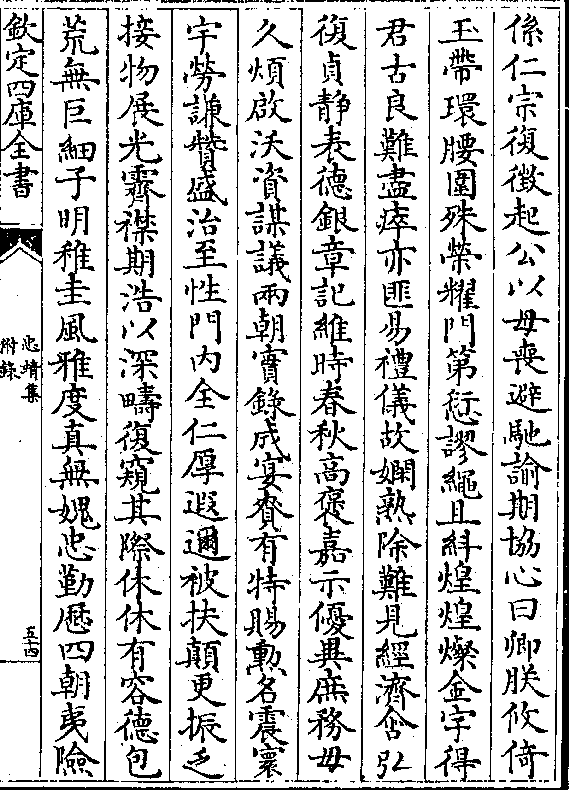 係仁宗復徴起公以母喪避馳諭期協心曰卿朕攸倚
玉帶環腰圍殊榮耀門第愆謬繩且糾煌煌燦金字得
君古良難盡瘁亦匪易禮儀故嫻熟除難見經濟含弘
復貞静表德銀章記維時春秋高褒嘉示優異庶務毋
久煩啟沃資謀議兩朝實錄成宴賚有特賜勲名震寰
宇勞謙贊盛治至性門内全仁厚遐邇被扶顛更振乏
接物展光霽襟期浩以深疇復窺其際休休有容德包
荒無巨細子明稚圭風雅度真無媿忠勤歴四朝夷險
欽定四庫全書
忠靖集
附錄
五十四